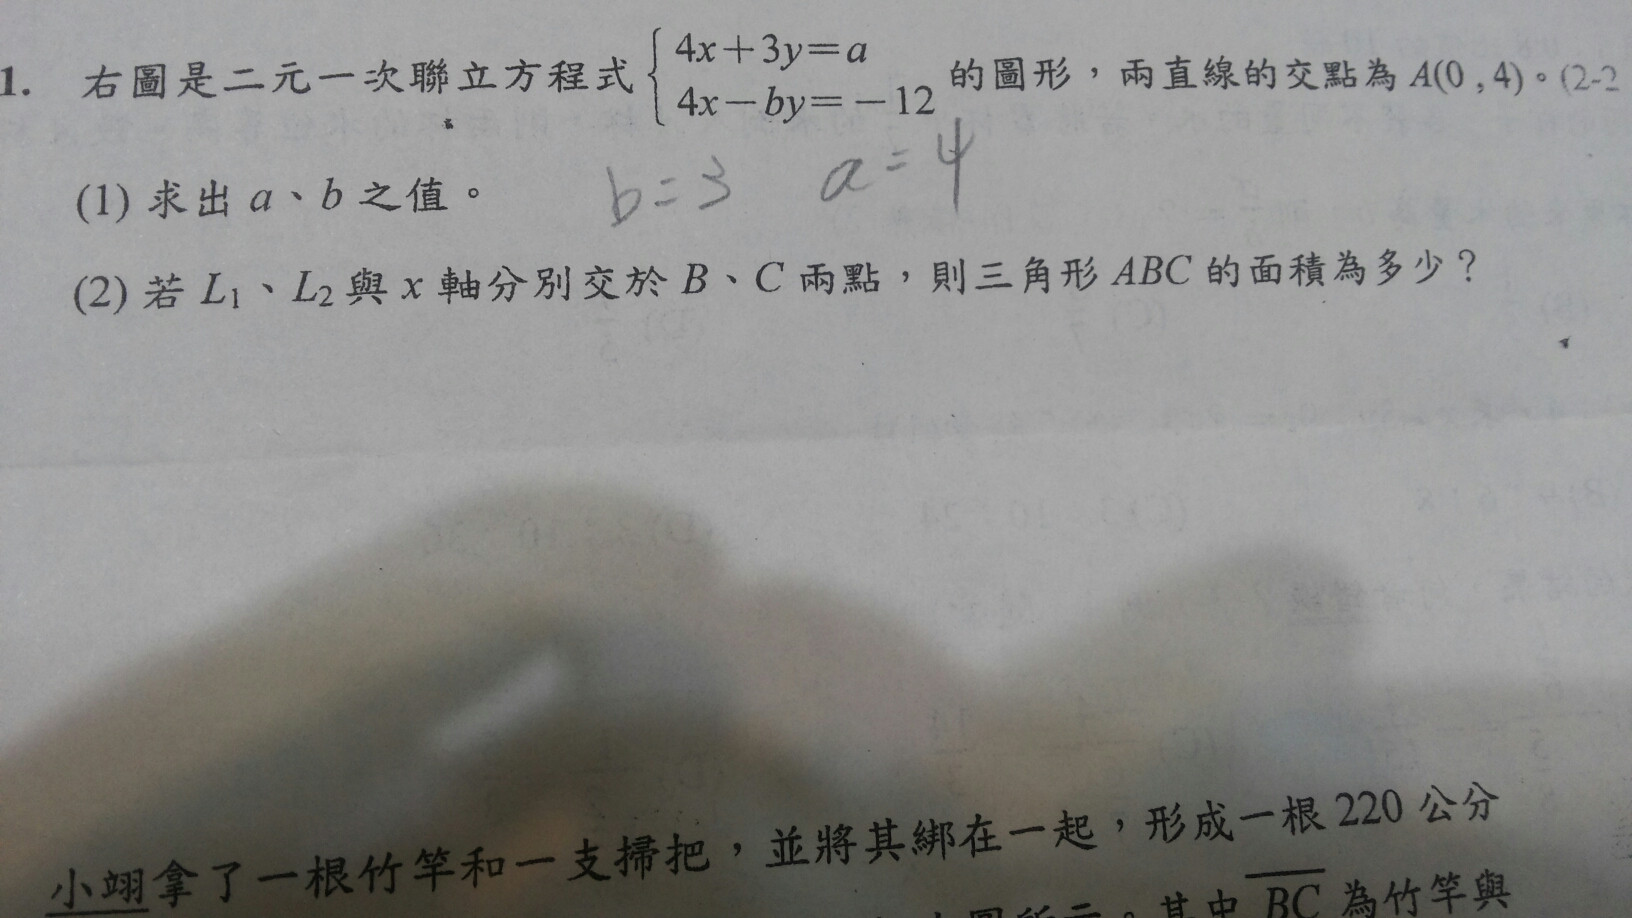 1. 右圖是二元一次聯立方程式 { 4x+3y=a
4x-by=-12 的圖形，兩直線的交點為 A(0,4)。(2-2
(1) 求出 a、b 之值。 b=3 a=4
(2) 若 L₁、L₂ 與 x 軸分別交於 B、C 兩點，則三角形 ABC 的面積為多少？
小翊拿了一根竹竿和一支掃把，並將其綁在一起，形成一根 220 公分
。其中 BC 為竹竿與